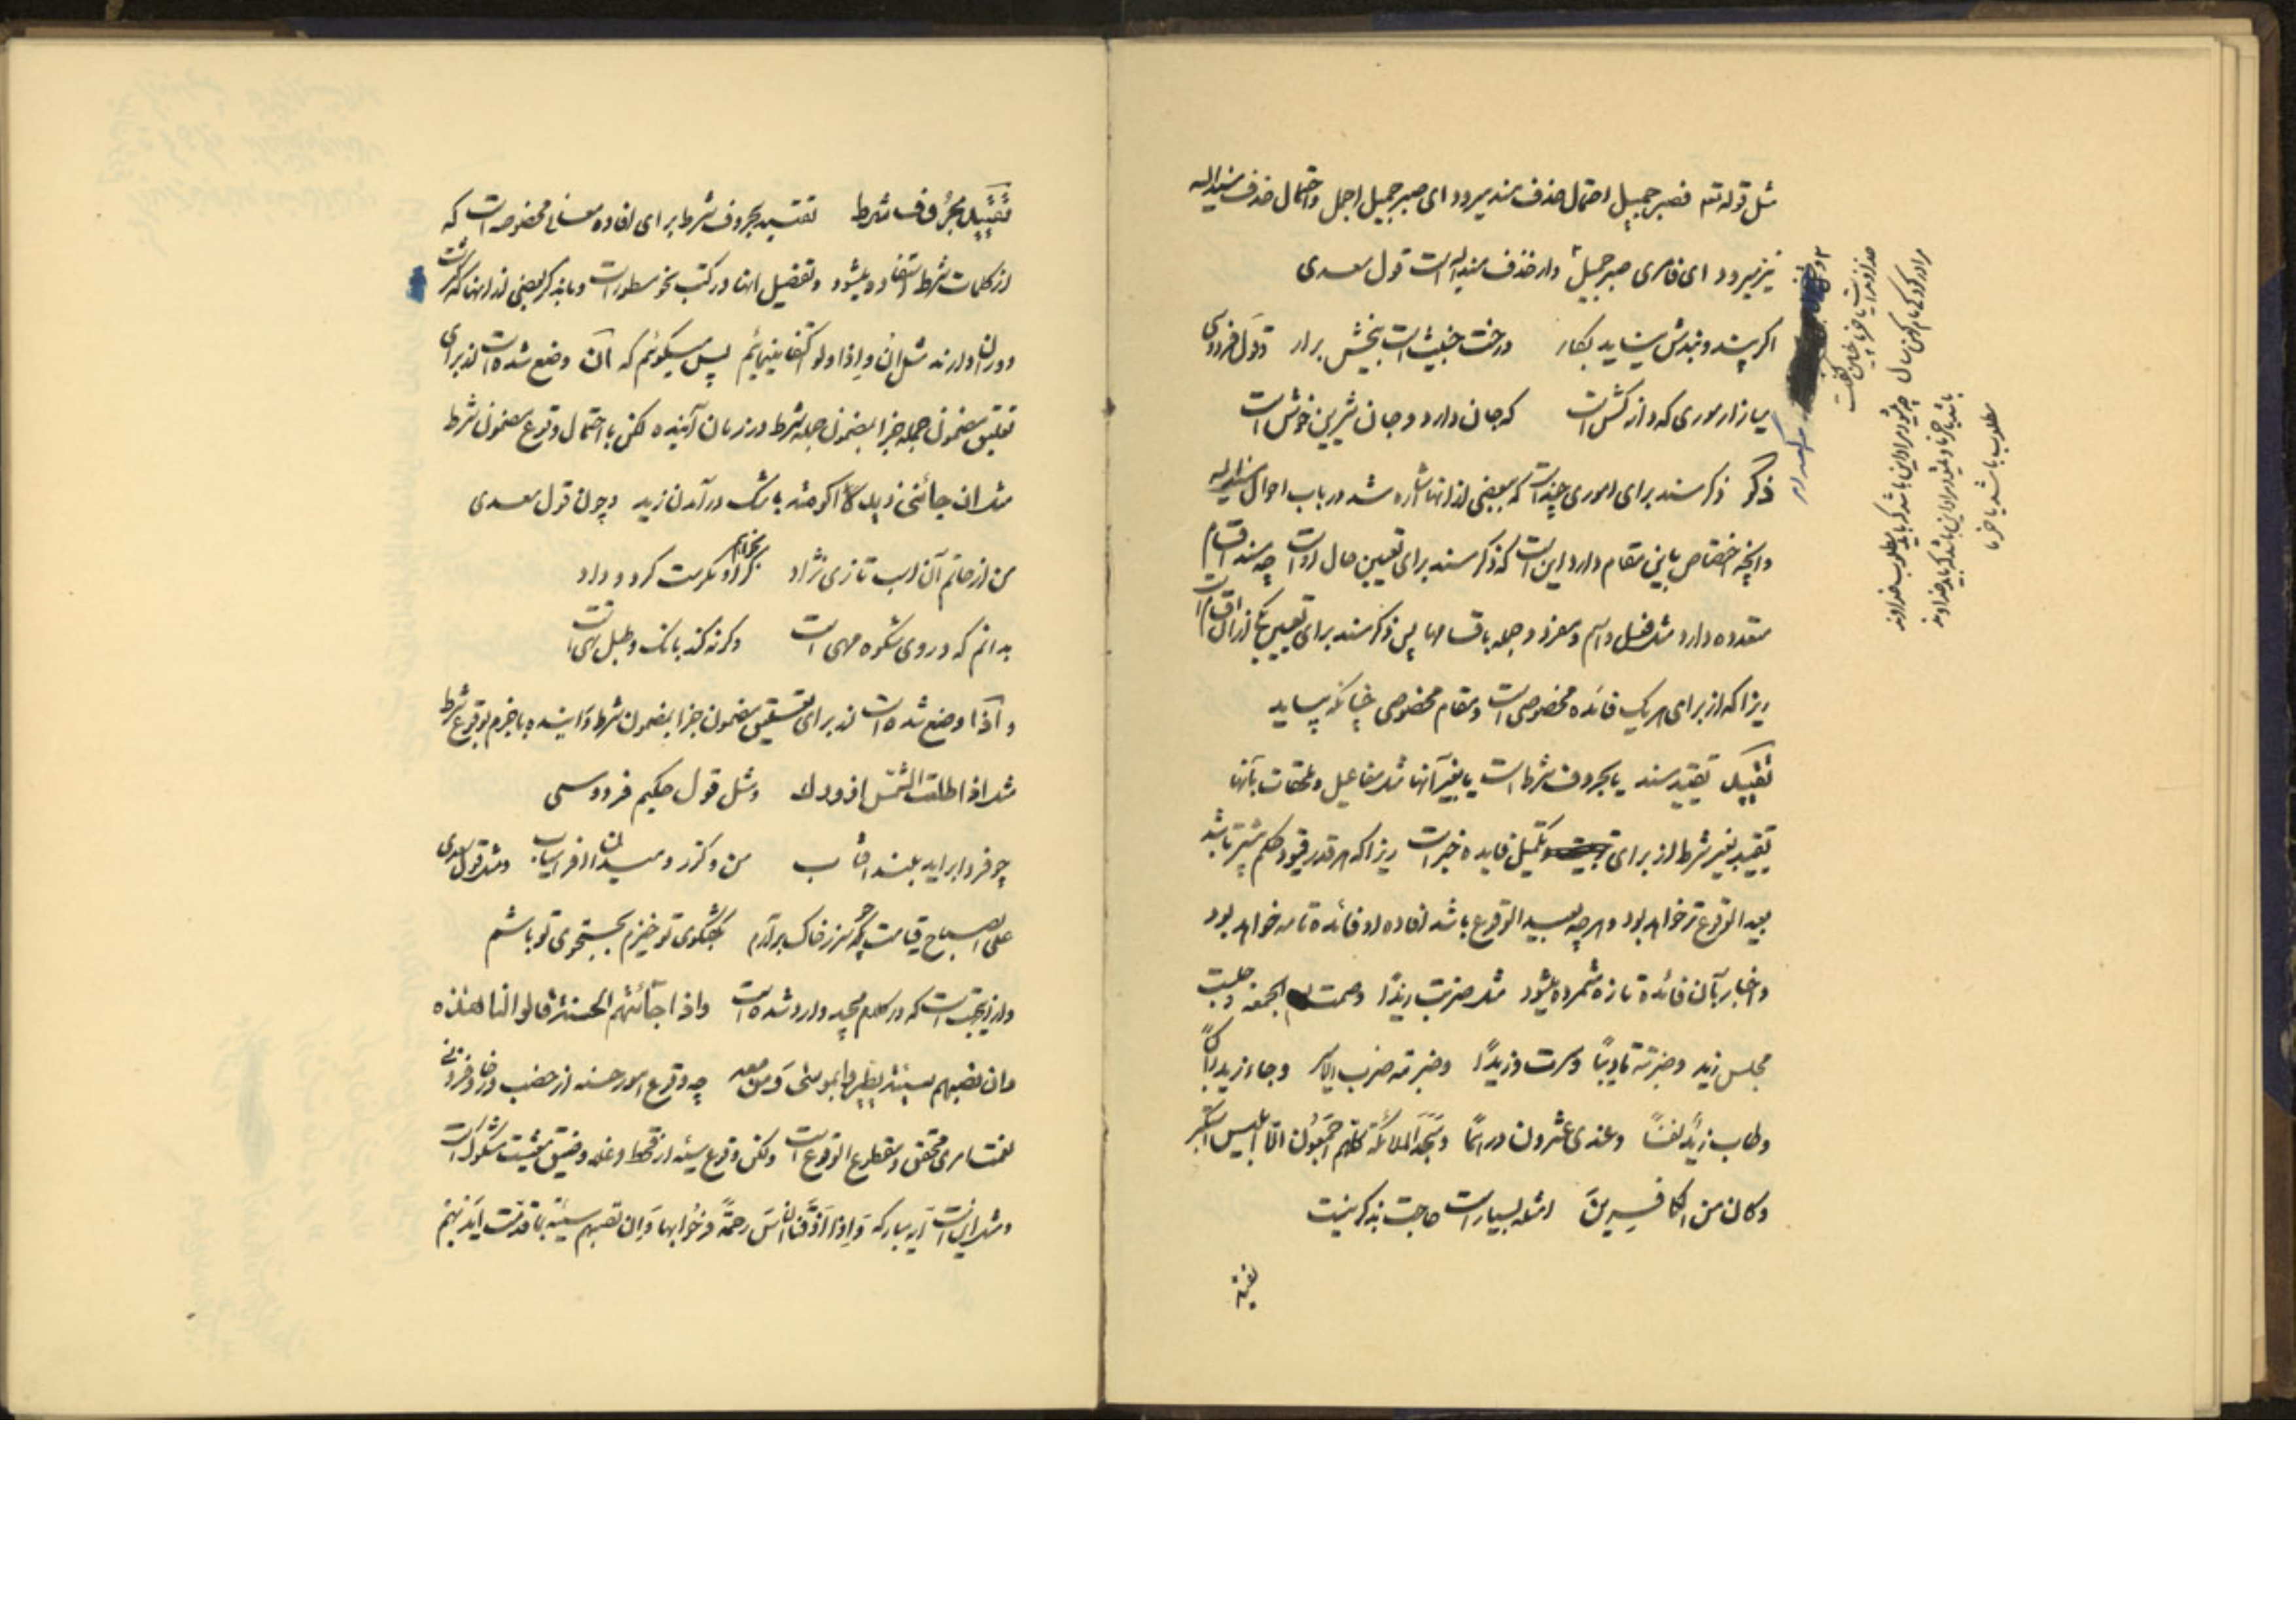 مثل قوله تع فصبر جمیل احتمال حذف مسند میرود ای صبر جمیل اجمل و احتمال حذف مسند الیه
نیز میرود ای فامری صبر جمیلٌ و از حذف مسند الیه است قول سعدی
اگر پند و بندش نیاید بکار درخت خبیث است بیخش برار و قول فردوسی
میازار موری که دانه کش است که جان دارد و جان شیرین خوش است
ذکر ذکر مسند برای اموری چند است که ببعضی از انها اشاره شد در باب احوال مسند الیه
و انچه اختصاص باین مقام دارد این است که ذکر مسند برای تعیین حال اوست چه مسند اقسام
متعدده دارد مثل فعل و اسم و مفرد و جمله باقسامها پس ذکر مسند برای تعیین یکی از ان اقسام است
زیرا که از برای هر یک فائده مخصوصی است و مقام مخصوصی چنانکه بیاید
تقیید تقیید مسند یا بحروف شرط است یا بغیر آنها مثل مفاعیل و ملحقات بآنها
تقیید بغیر شرط از برای تکمیل فایده خبر است زیرا که هر قدر قیود حکم بیشتر باشد
بعید الوقوع تر خواهد بود و هر چه بعید الوقوع باشد افاده او فائده تامه خواهد بود
و اخبار بآن فائده تازه شمرده میشود مثل ضربت زیدًا و صمت الجمعة و جلست
مجلس زید و ضربته تادیبًا و سرت و زیدًا و ضربته ضرب الامیر و جاء زید راکبًا
و طاب زیدٌ نفسًا و عندی عشرون درهمًا و سَجَدَ الملائکة کلّهم اجمعون الّا ابلیس استکبر
و کان من الکافرینَ امثله بسیار است حاجت بذکر نیست
تقیید بحروف شرط تقیید بحروف شرط برای افاده معانی مخصوصه است که
از کلمات شرط استفاده میشود و تفصیل انها در کتب نحو مسطور است و ما بذکر بعضی از انها که کثرت
دوران دارند مثل ان و اذا و لو اکتفا مینمائیم پس میگوئیم که اَن وضع شده است از برای
تعلیق مضمون جمله جزا بمضمون جمله شرط در زمان آینده لکن با احتمال وقوع مضمون شرط
مثل ان جائنی زید اکرمته با شک در آمدن زید و چون قول سعدی
من از حاتم آن اسب تازی نژاد بخواهم گر او مکرمت کرد و داد
بدانم که در وی شکوه مهی است و گرنه کند بانک و طبل تهی است
و اذا وضع شده است از برای تعلیق مضمون جزا بمضمون شرط در اینده با جزم بوقوع شرط
مثل اذا طلعت الشمس ازورك و مثل قول حکیم فردوسی
چو فردا براید بلند افتاب من و گرز و میدان افراسیاب و مثل قول سعدی
علی الصباح قیامت که سر ز خاک برآرم بگفتگوی تو خیزم بجستجوی تو باشم
و از اینجهت است که در کلام مجید وارد شده است و اذا جائتهم الحسنة قالوا لنا هذه
و ان تصبهم سیئة یطیروا بموسی وَ من معه چه وقوع امور حسنه از خصب و رخا و فزونی
نعمت امری محقق و مقطوع الوقوع است ولکن وقوع سیئه از قحط و غلا و ضیق معیشت مشکوک است
و مثل این است آیه مبارکه وَ اِذا اَذَقنا النّاسَ رحمةً فرحُوا بها وَ اِن تصبهم سیّئة بما قدمت ایدیهِم